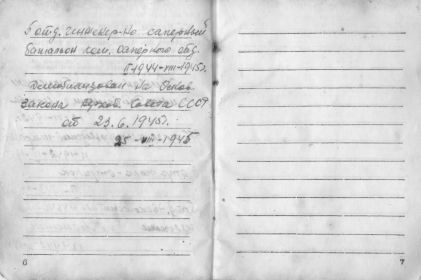 5 отд. инженер-но саперный
баталъон ком. саперного отд.
1944-VIII-1945г.
Демобилизован на основ.
Закона Верхов. Совета СССР
от 23.6.1945г.
25-VIII-1945
6
7